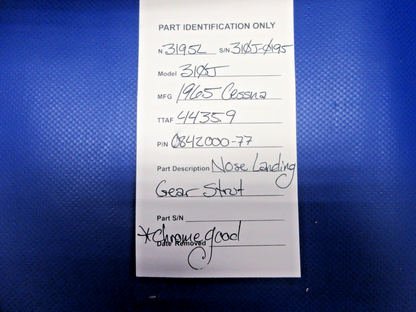 PART IDENTIFICATION ONLY
N 3195L S/N 310J-0195
Model 310J
MFG 1965 Cessna
TTAF 4435.9
P/N 0842000-77
Part Description Nose Landing
Gear Strut
Part S/N
*Chrome good
Date Removed